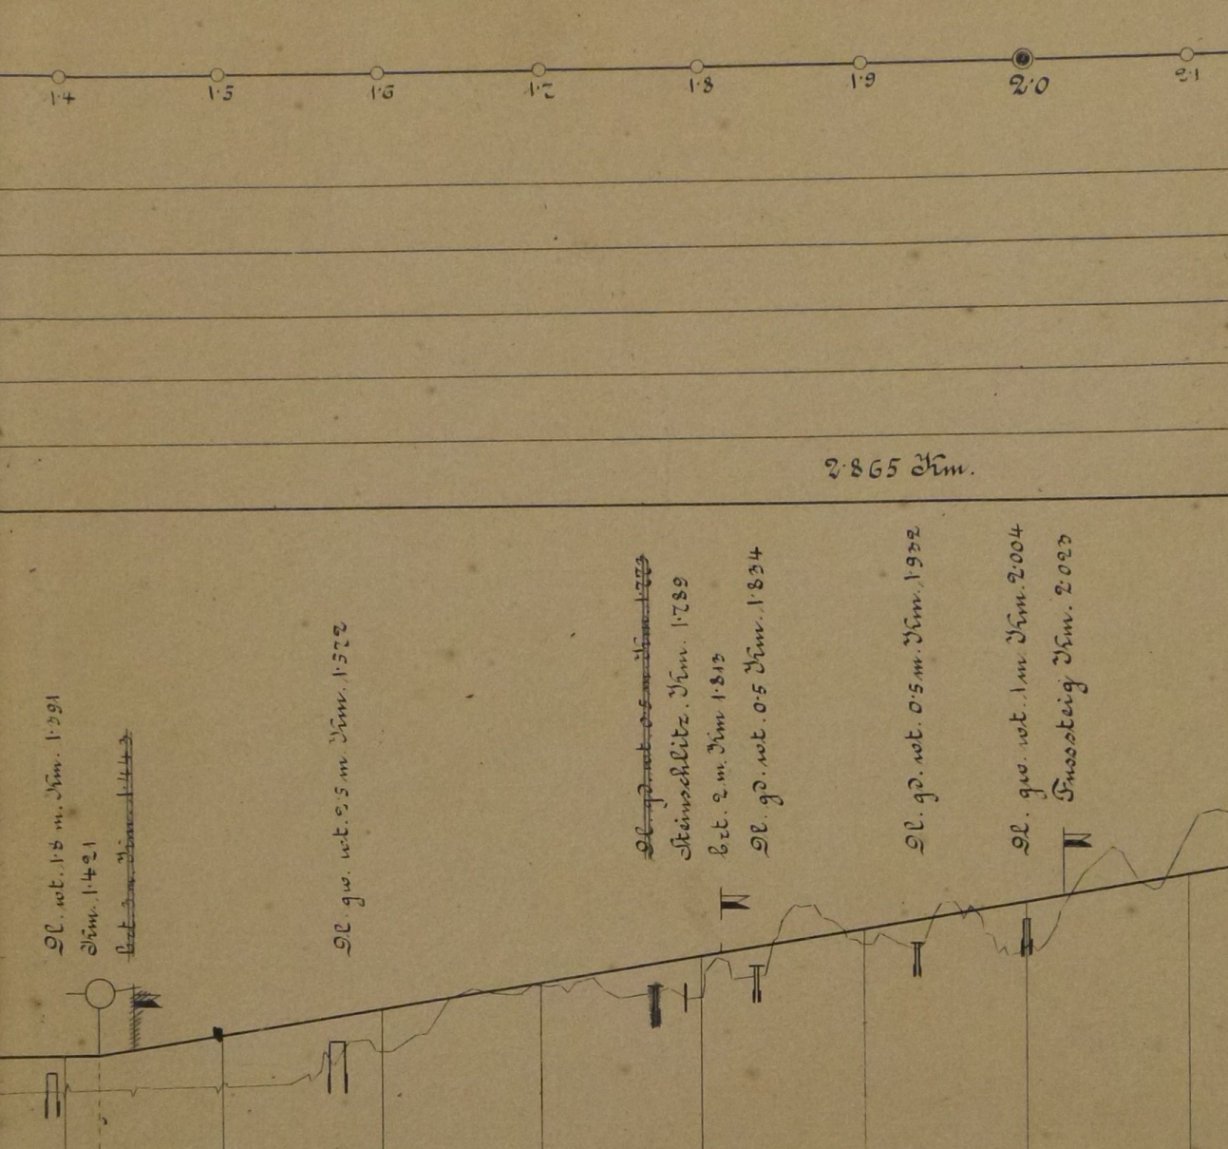 1·4 1·5 1·6 1·7 1·8 1·9 2·0 2·1
2·865 Km.
Dl. wt. 1·8 m. Km. 1·391
Km. 1·421
brt. 3 m Km. 1·443
Dl. gw. wt. 2·5 m Km. 1·572
Dl. gd. wt. 0·5 m Km. 1·773
Steinschlitz. Km. 1·789
brt. 2 m. Km 1·813
Dl. gd. wt. 0·5 Km. 1·834
Dl. gd. wt. 0·5 m. Km. 1·932
Dl. gw. wt. 1 m Km. 2·004
Fusssteig Km. 2·023